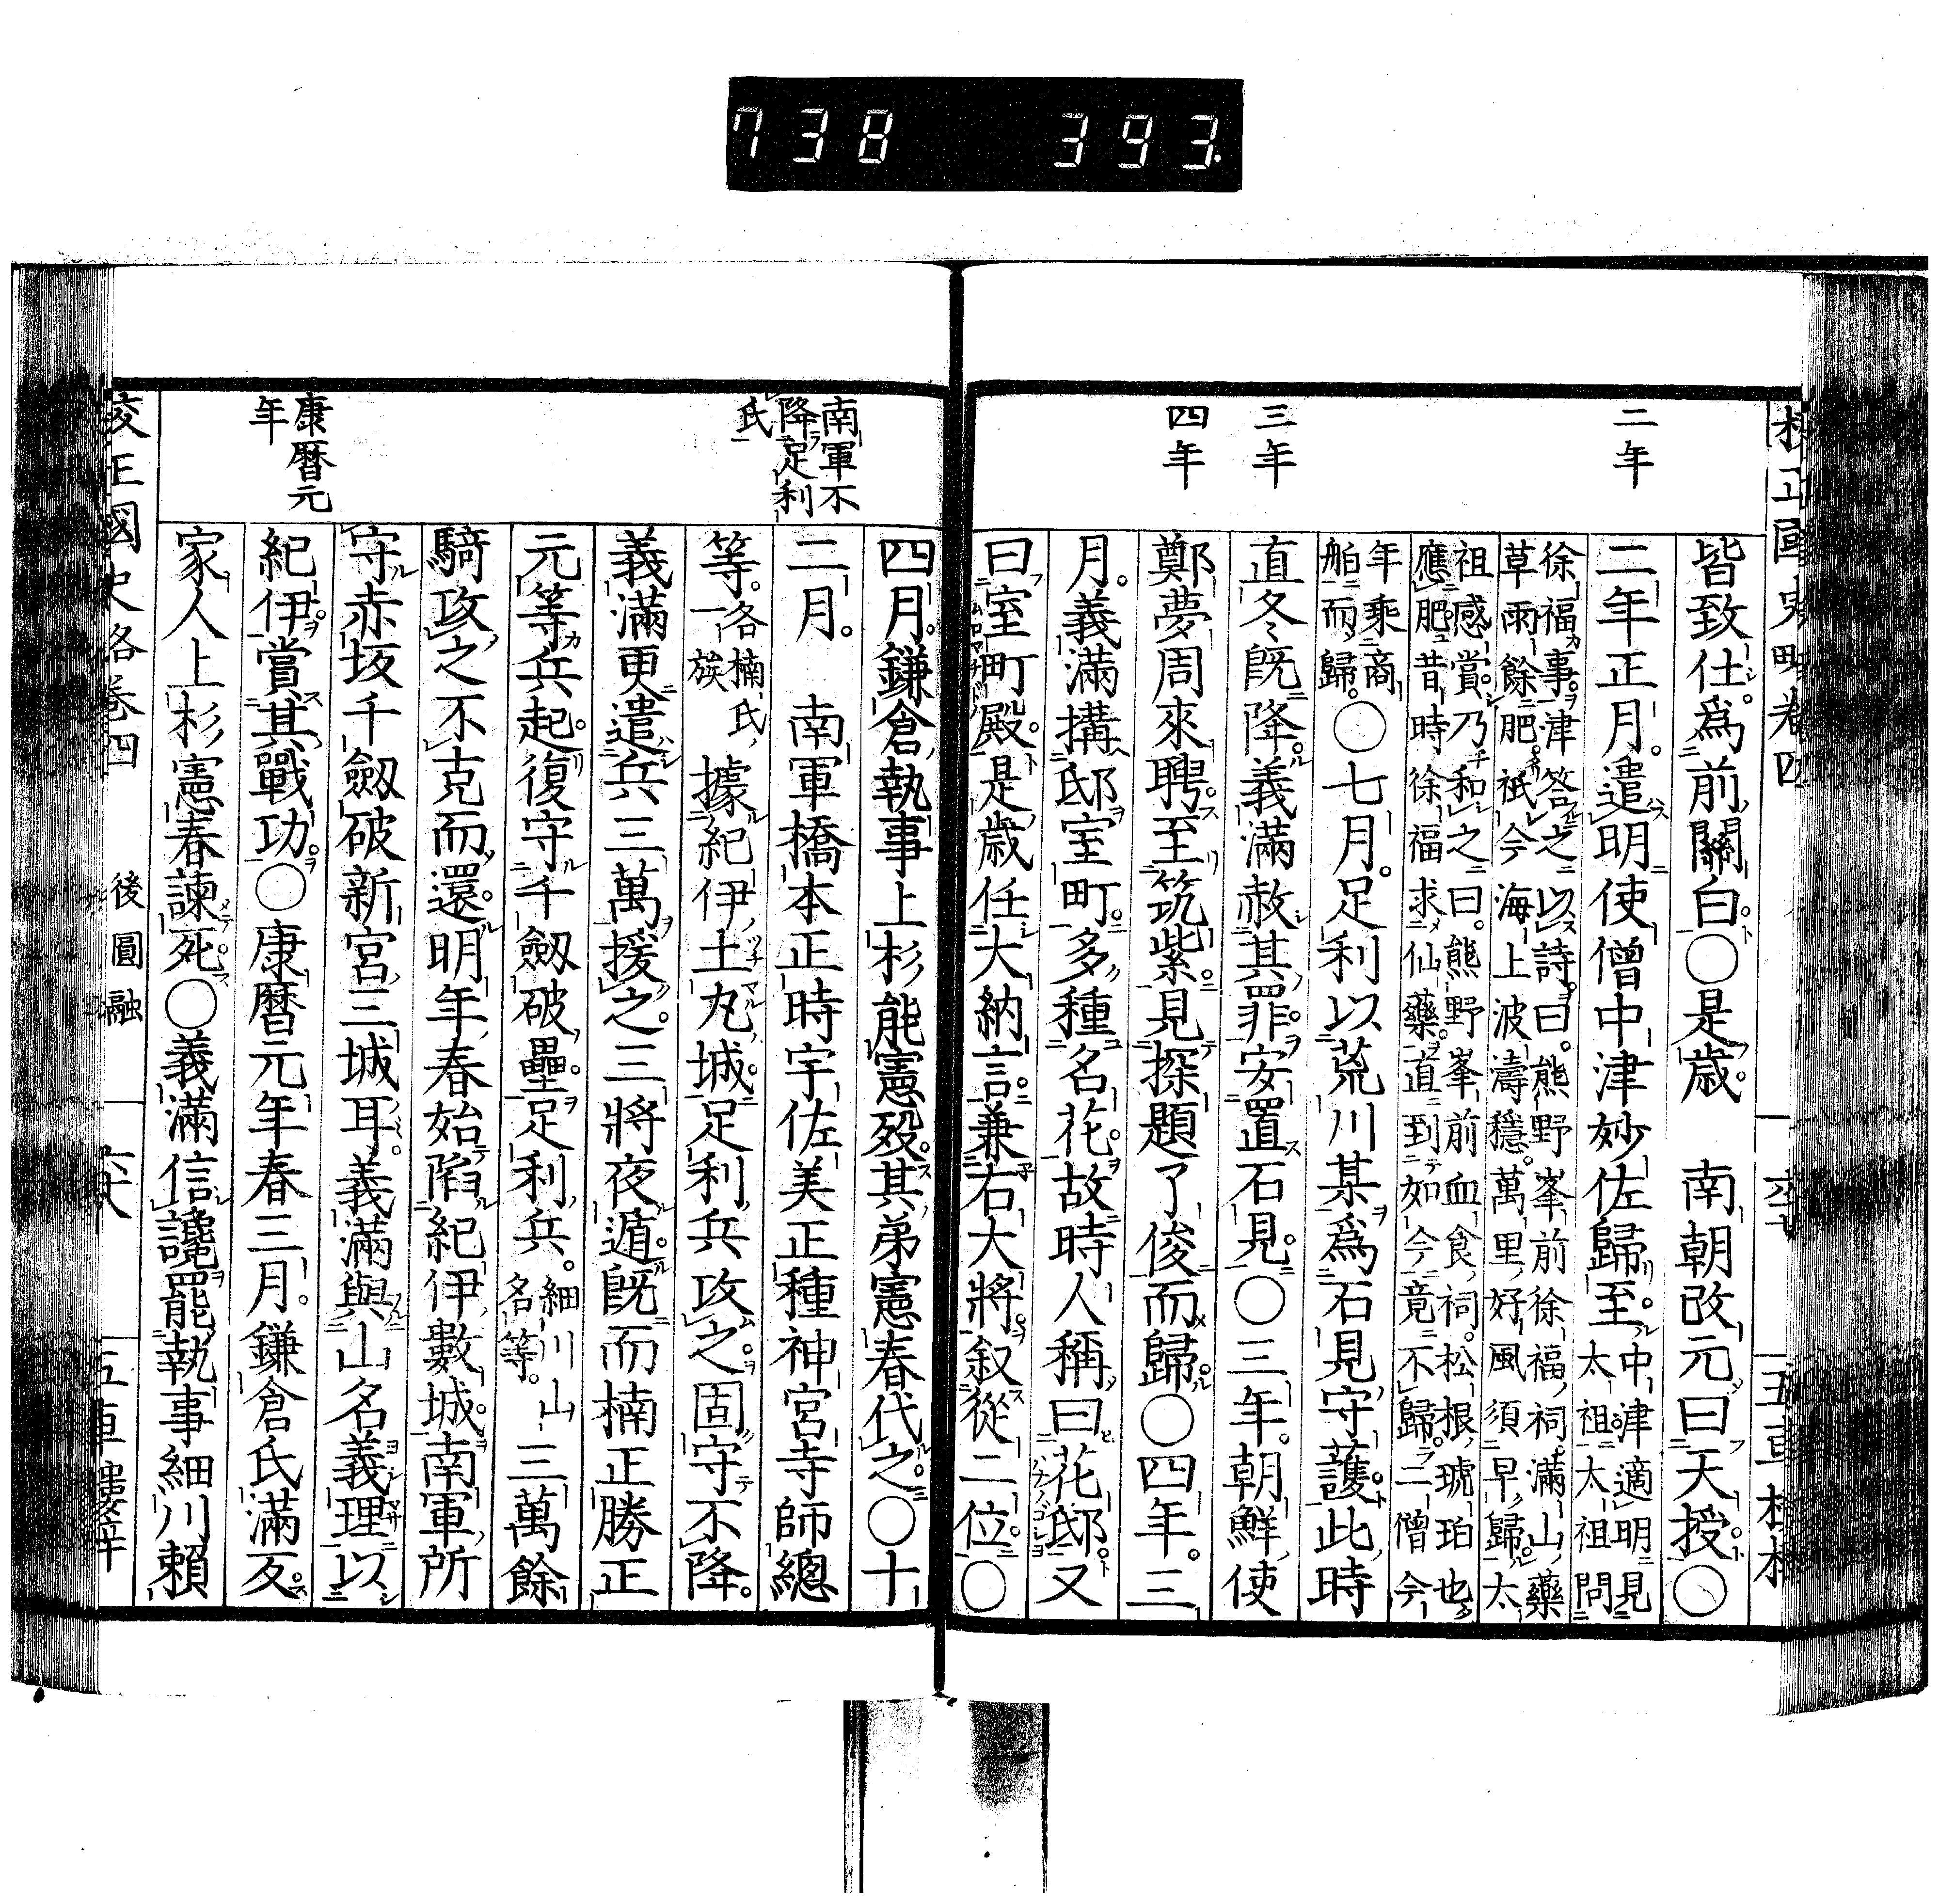 校正國史略卷四
五車樓梓
二年
三年
四年
皆致仕爲前關白。○是歲。　南朝改元曰天授。○
二年正月。遣明使僧中津妙佐歸至。中津適明見
太祖太祖問
徐福事。津答之以詩。曰。熊野峯前徐福祠。滿山藥
草雨餘肥。祇今海上波濤穩。萬里好風須早歸。太
祖感賞。乃和之曰。熊野峯前血食祠。松根琥珀也
應肥。昔時徐福求仙藥。直到如今竟不歸。二僧今
年乘商
舶而歸。○七月。足利以荒川某爲石見守護。此時
直冬既降。義滿赦其罪。安置石見。○三年。朝鮮使
鄭夢周來聘。至筑紫。見探題了俊而歸。○四年。三
月。義滿搆邸室町。多種名花。故時人稱曰花邸。又
曰室町殿。是歳任大納言。兼右大將。叙從二位。○
南軍不
降足利
氏
康曆元
年
四月。鎌倉執事上杉能憲歿。其弟憲春代之。○十
二月。　南軍橋本正時宇佐美正種神宮寺師總
等。各楠氏
族據紀伊土丸城。足利兵攻之。固守不降。
義滿更遣兵三萬援之。三將夜遁。既而楠正勝正
元等兵起。復守千劔破壘。足利兵。細川山
名等。三萬餘
騎攻之。不克而還。明年春始陷紀伊數城。南軍所
守赤坂千劔破新宮三城耳。義滿與山名義理以
紀伊。賞其戰功。○康曆元年春三月。鎌倉氏滿反。
家人上杉憲春諫死。○義滿信讒罷執事細川賴
校正國史略卷四　後圓融
五車樓梓